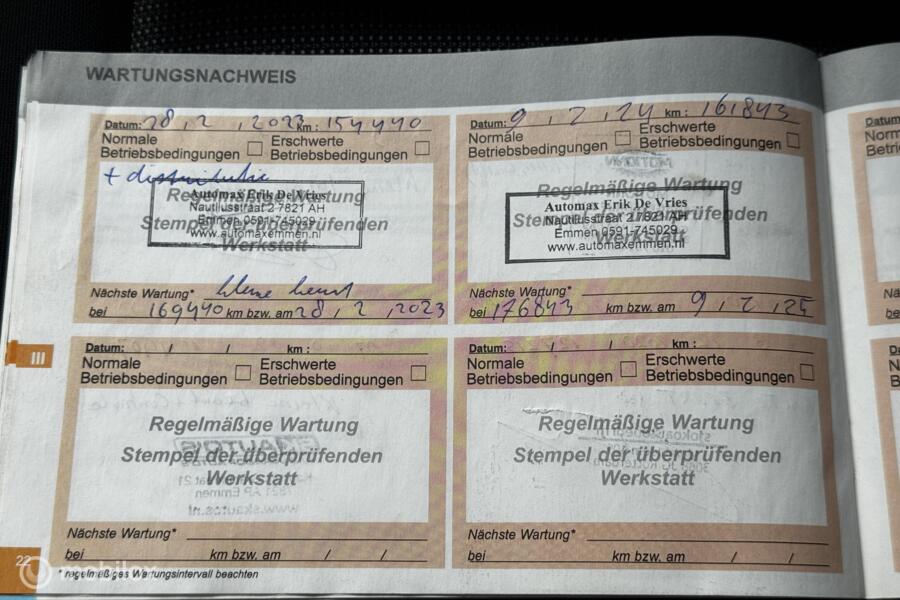 WARTUNGSNACHWEIS
Datum: 28, 2, 2023 km: 154440
Normale Betriebsbedingungen
Erschwerte Betriebsbedingungen
+ distributie
Regelmäßige Wartung
Stempel der überprüfenden
Werkstatt
Automax Erik De Vries
Nautilusstraat 2 7821 AH
Emmen 0591-745029
www.automaxemmen.nl
Nächste Wartung* kleine beurt
bei 169440 km bzw. am 28, 2, 2023
Datum: 9, 2, 24 km: 161843
Normale Betriebsbedingungen
Erschwerte Betriebsbedingungen
Regelmäßige Wartung
Stempel der überprüfenden
Werkstatt
Automax Erik De Vries
Nautilusstraat 2 7821 AH
Emmen 0591-745029
www.automaxemmen.nl
Nächste Wartung*
bei 176843 km bzw. am 9, 2, 25
Datum: / / km:
Normale Betriebsbedingungen
Erschwerte Betriebsbedingungen
Regelmäßige Wartung
Stempel der überprüfenden
Werkstatt
Nächste Wartung*
bei km bzw. am / /
Datum: / / km:
Normale Betriebsbedingungen
Erschwerte Betriebsbedingungen
Regelmäßige Wartung
Stempel der überprüfenden
Werkstatt
Nächste Wartung*
bei km bzw. am / /
III
22
* regelmäßiges Wartungsintervall beachten